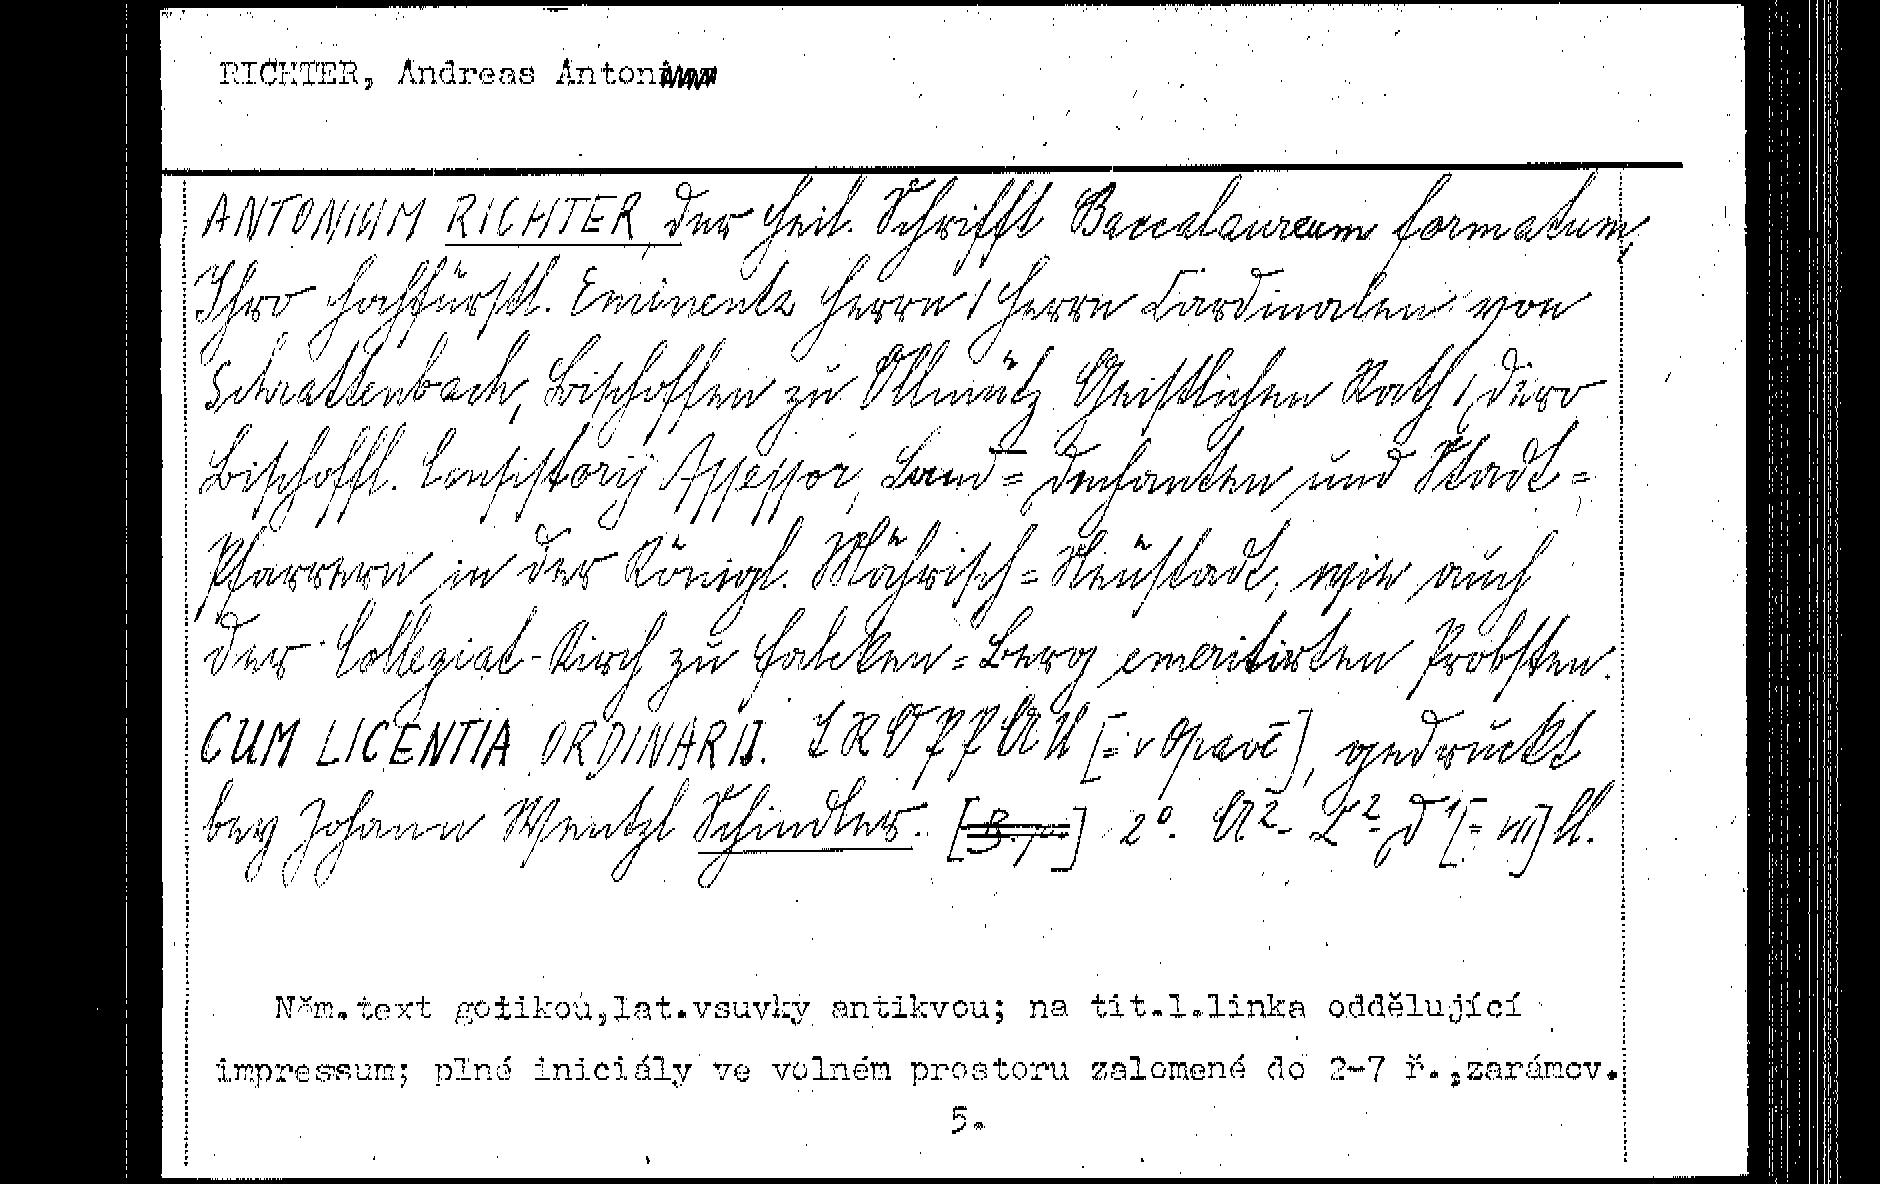 RICHTER, Andreas Anton
ANTONIUM RICHTER, der Heil. Schrifft Baccalaureum formatum,
Ihro Hochfürstl. Eminentz Herrn / Herrn Cardinalen von
Schrattenbach, Bischoffen zu Ollmütz Geistlichen Rath / dero
Bischoffl. Consistorij Assessor, Land= Dechanten und Stadt=
Pfarrern in der Königl. Mährisch=Neustadt, wie auch
der Collegiat-Kirch zu Falcken=Berg emeritirten Probsten.
CUM LICENTIA ORDINARII. TROPPAU [= v Opavě], gedruckt
bey Johann Wentzl Schindler. [ ] 2°. A²- L²- d¹[= VII] ll.
Něm.text gotikou,lat.vsuvky antikvou; na tit.l.linka oddělující
impressum; plné iniciály ve volném prostoru zalomené do 2-7 ř.;zarámov.
5.